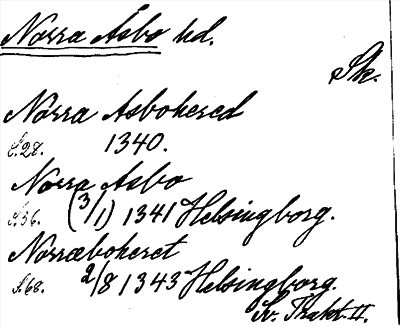 Norra Åsbo hd.
Sk.
Norra Asbohered
s. 27. 1340.
Norra Asbo
s. 36. (3/1) 1341 Helsingborg.
Norræboheret
s. 68. 2/8 1343 Helsingborg.
Sv. Trakt. II.